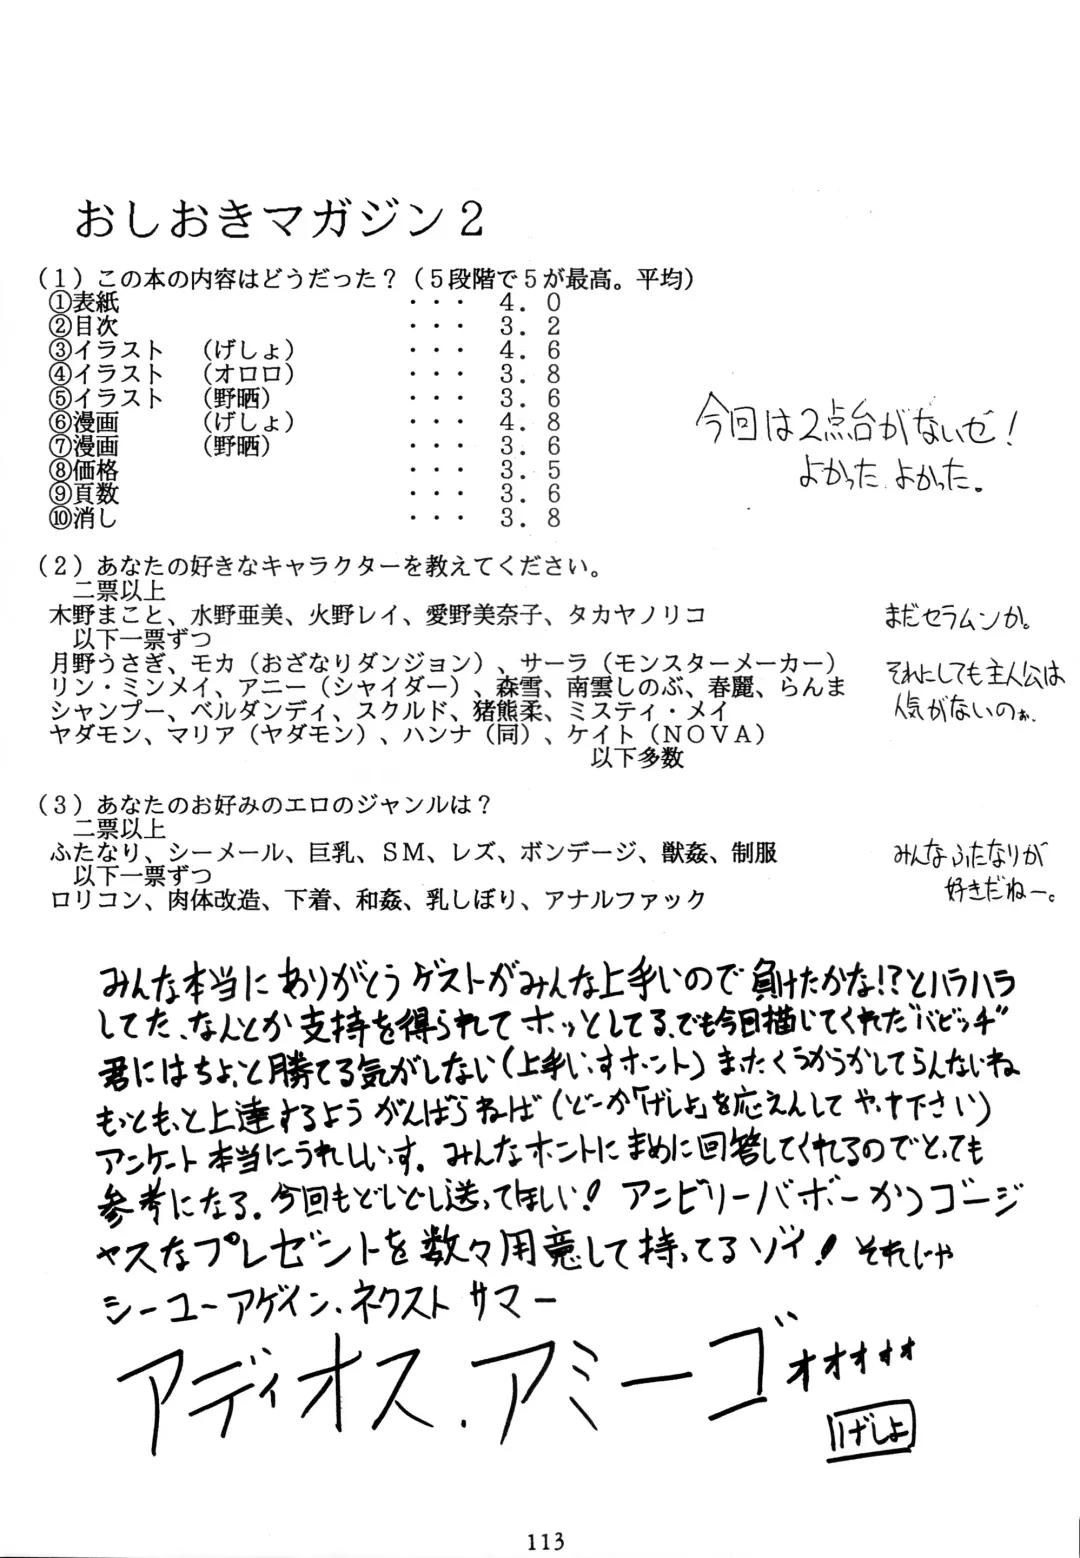 おしおきマガジン2
(1)この本の内容はどうだった?(5段階で5が最高。平均)
①表紙 ・・・ 4.0
②目次 ・・・ 3.2
③イラスト (げしょ) ・・・ 4.6
④イラスト (オロロ) ・・・ 3.8
⑤イラスト (野晒) ・・・ 3.6
⑥漫画 (げしょ) ・・・ 4.8
⑦漫画 (野晒) ・・・ 3.6
⑧価格 ・・・ 3.5
⑨頁数 ・・・ 3.6
⑩消し ・・・ 3.8
今回は2点台がないぜ!
よかった、よかった。
(2)あなたの好きなキャラクターを教えてください。
二票以上
木野まこと、水野亜美、火野レイ、愛野美奈子、タカヤノリコ
以下一票ずつ
月野うさぎ、モカ(おざなりダンジョン)、サーラ(モンスターメーカー)
リン・ミンメイ、アニー(シャイダー)、森雪、南雲しのぶ、春麗、らんま
シャンプー、ベルダンディ、スクルド、猪熊柔、ミスティ・メイ
ヤダモン、マリア(ヤダモン)、ハンナ(同)、ケイト(NOVA)
以下多数
まだセラムンか。
それにしても主人公は
人気がないのぉ、
(3)あなたのお好みのエロのジャンルは?
二票以上
ふたなり、シーメール、巨乳、SM、レズ、ボンデージ、獣姦、制服
以下一票ずつ
ロリコン、肉体改造、下着、和姦、乳しぼり、アナルファック
みんなふたなりが
好きだねー。
みんな本当にありがとうゲストがみんな上手いので負けたかな!?とハラハラ
してた、なんとか支持を得られてホッとしてる、でも今日描いてくれた"バビッチ"
君にはちょっと勝てる気がしない(上手いっすホント)まったくうかうかしてらんないね
もっともっと上達するようがんばらねば(どーか「げしょ」を応えんしてやって下さい)
アンケート本当にうれしいっす。みんなホントにまめに回答してくれるのでとっても
参考になる。今回もどしどし送ってほしい!アンビリーバボーかつゴージ
ャスなプレゼントを数々用意して持ってるゾイ!それじゃ
シーユーアゲイン、ネクストサマー
アディオス、アミーゴォオオオオ
げしょ
113